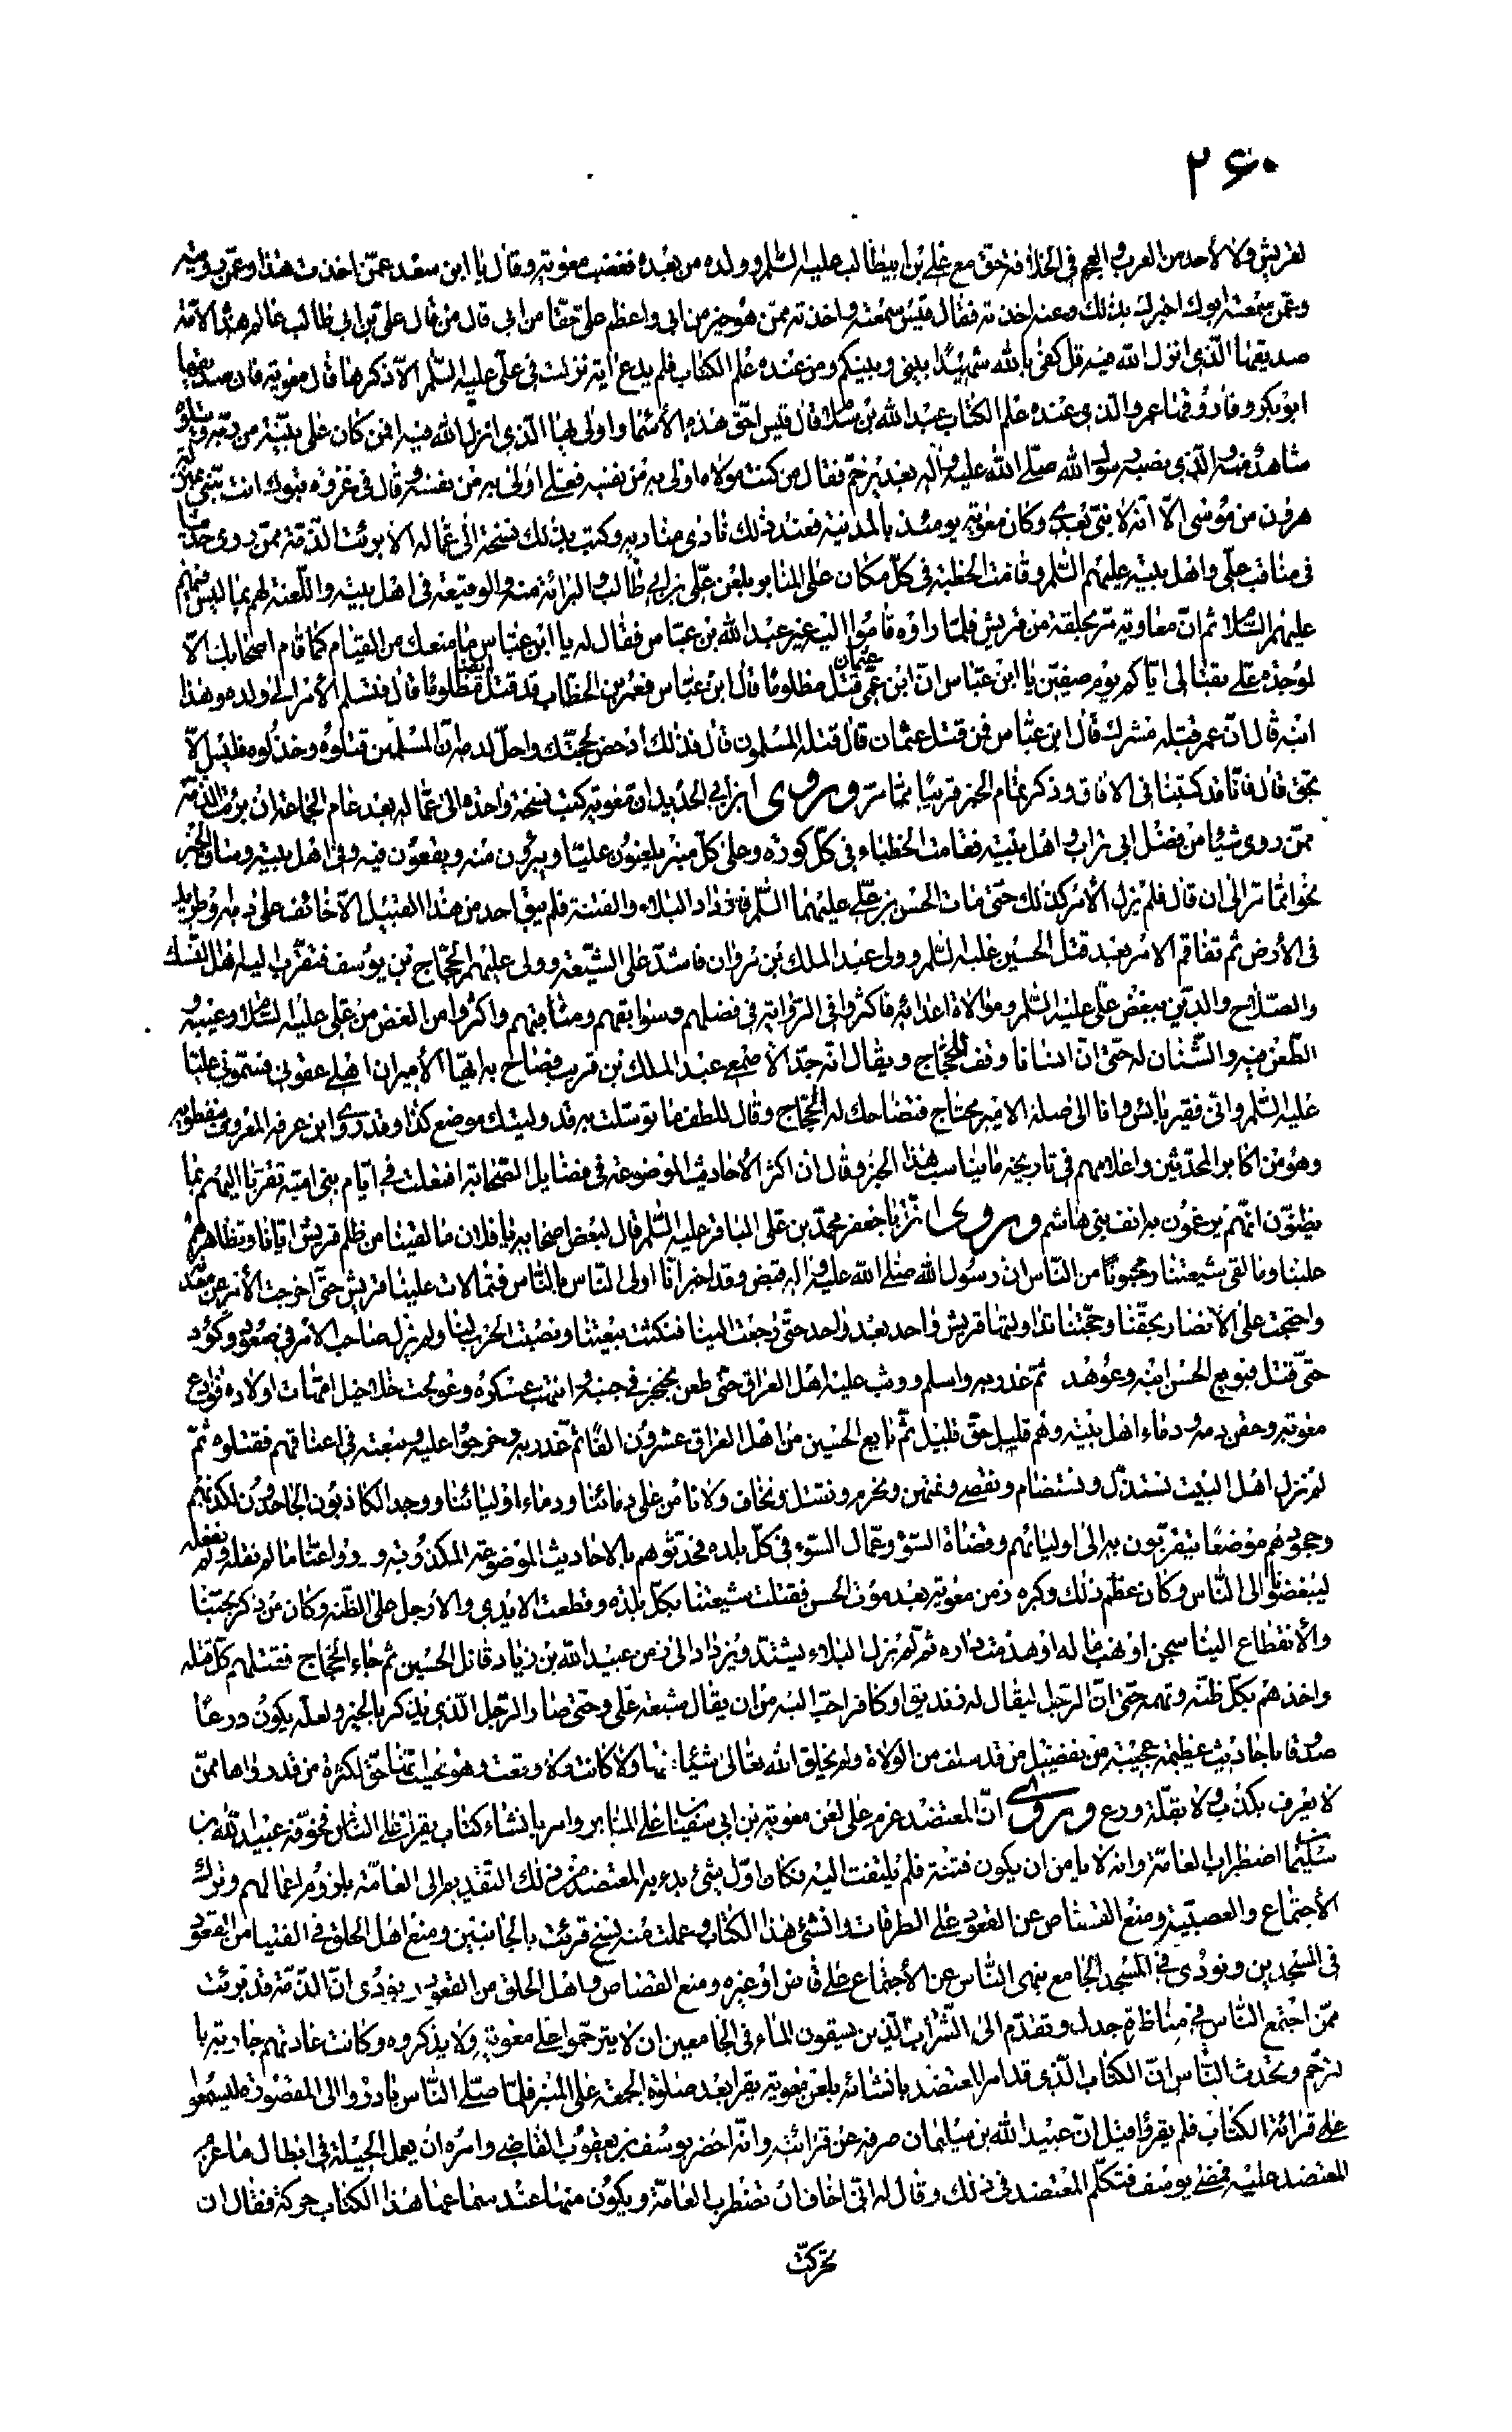 ۲۶۰
لقريش ولا لأحد من العرب والعجم في الخلافة حق مع علي بن ابيطالب عليه السلم وولده من بعده فغضب معوية وقال يا ابن سعد عمن اخذت هذا وعمن ترويه
وعمن سمعته ابوك اخبرك بذلك وعنه اخذته فقال قيس سمعته واخذته ممن هو خير من ابي واعظم علي حقا من ابي قال من قال علي بن ابي طالب عالم هذه الامة
صديقها الذي انزل الله فيه قل كفى بالله شهيدا بيني وبينكم ومن عنده علم الكتاب فلم يدع اية نزلت في علي عليه السلم الا ذكرها قال معوية فان صديقها
ابو بكر وفاروقها عمر والذي عنده علم الكتاب عبد الله بن سلام قال قيس احق هذه الأسماء واولى بها الذي انزل الله فيه افمن كان على بينة من ربه ويتلوه
شاهد منه والذي نصبه رسول الله صلى الله عليه واله بغدير خم فقال من كنت مولاه اولى به من نفسه فعلي اولى به من نفسه وقال في غزوة تبوك انت مني بمنزلة
هرون من موسى الا انه لا نبي بعدي وكان معوية يومئذ بالمدينة فعند ذلك نادى مناديه وكتب بذلك نسخة الى عماله الا برئت الذمة ممن روى حديثا
في مناقب علي واهل بيته عليهم السلم وقامت الخطبة في كل مكان على المنابر بلعن علي بن ابي طالب والبرائة منه والوقيعة في اهل بيته واللعنة لهم بما ليس فيهم
عليهم السلام ثم ان معاوية مر بحلقة من قريش فلما راوه قاموا اليه غير عبد الله بن عباس فقال له يا ابن عباس ما منعك من القيام كما قام اصحابك الا
لموجدة علي بقتالي اياكم يوم صفين يا ابن عباس ان ابن عمي عثمان قتل مظلوما قال ابن عباس فعمر بن الخطاب قد قتل مظلوما قال فتسلم الأمر الى ولده وهذا
ابنه قال ان عمر قتله مشرك قال ابن عباس فمن قتل عثمان قال قتله المسلمون قال فذلك ادحض لحجتك واحل لدمه ان المسلمين قتلوه وخذلوه فليس الا
بحق قال فانا قد كتبنا في الافاق وذكر تمام الخبر قريبا مما مر وروى ابن ابي الحديد ان معوية كتب نسخة واحدة الى عماله بعد عام الجماعة ان برئت الذمة
ممن روى شيئا من فضل ابي تراب واهل بيته فقامت الخطباء في كل كورة وعلى كل منبر يلعنون عليا ويبرؤن منه ويقعون فيه وفي اهل بيته وساق الخبر
نحوا مما مر الى ان قال فلم يزل الأمر كذلك حتى مات الحسن بن علي عليهما السلم فازداد البلاء والفتنة فلم يبق احد من هذا القبيل الا خائف على دمه او طريد
في الأرض ثم تفاقم الامر بعد قتل الحسين عليه السلم وولى عبد الملك بن مروان فاشتد على الشيعة وولى عليهم الحجاج بن يوسف فتقرب اليه اهل النسك
والصلاح والدين ببغض علي عليه السلم وموالاة اعدائه فاكثروا في الرواية في فضلهم وسوابقهم ومناقبهم واكثروا من الغض من علي عليه السلام وعيبه
الطعن فيه والشنان له حتى ان انسانا وقف للحجاج ويقال انه جد الأصمعي عبد الملك بن قريب فصاح به ايها الأمير ان اهلي عقوني فسموني عليا
عليه السلم واني فقير بائس وانا الى صلة الامير محتاج فتضاحك له الحجاج وقال للطف ما توسلت به قد وليتك موضع كذا وقد روى ابن عرفة المعروف بنفطويه
وهو من اكابر المحدثين واعلامهم في تاريخه ما يناسب هذا الخبر وقال ان اكثر الأحاديث الموضوعة في فضايل الصحابة افتعلت في ايام بني امية تقربا اليهم بما
يظنون انهم يرغمون به انف بني هاشم وروى ان ابا جعفر محمد بن علي الباقر عليه السلم قال لبعض اصحابه يا فلان ما لقينا من ظلم قريش ايانا وتظاهرهم
علينا وما لقي شيعتنا ومحبونا من الناس ان رسول الله صلى الله عليه واله قبض وقد اخبر انا اولى الناس بالناس فتمالات علينا قريش حتى اخرجت الأمر عن معدنه
واحتجت على الأنصار بحقنا وحجتنا تداولتها قريش واحد بعد واحد حتى رجعت الينا فنكثت بيعتنا ونصبت الحرب لنا ولم يزل صاحب الأمر في صعود وكؤد
حتى قتل فبويع الحسن ابنه وعوهد ثم غدر به واسلم ووثب عليه اهل العراق حتى طعن بخنجر في جنبه وانتهب عسكره وعولجت خلاخيل امهات اولاده فوادع
معوية وحقن دمه ودماء اهل بيته وهم قليل حق قليل ثم بايع الحسين من اهل العراق عشرون الفا ثم غدر به وخرجوا عليه وبيعته في اعناقهم فقتلوه ثم
لم نزل اهل البيت نستذل ونستضام ونقصى ونمتهن ونحرم ونقتل ونخاف ولا نامن على دمائنا ودماء اوليائنا ووجد الكاذبون الجاحدون لكذبهم
وجحودهم موضعا يتقربون به الى اوليائهم وقضاة السوء وعمال السوء في كل بلدة فحدثوهم بالاحاديث الموضوعة المكذوبة ورووا عنا ما لم نقله ولم نفعله
ليبغضونا الى الناس وكان عظم ذلك وكبره زمن معوية بعد موت الحسن فقتلت شيعتنا بكل بلدة وقطعت الايدي والأرجل على الظنة وكان من ذكر بحبنا
والأنقطاع الينا سجن او نهب ماله او هدمت داره ثم لم يزل البلاء يشتد ويزداد الى زمن عبيد الله بن زياد قاتل الحسين ثم جاء الحجاج فقتلهم كل قتلة
واخذهم بكل ظنة وتهمة حتى ان الرجل ليقال له زنديق او كافر احب اليه من ان يقال شيعة علي وحتى صار الرجل الذي يذكر بالخير ولعله يكون ورعا
صدوقا باحاديث عظيمة عجيبة من تفضيل من قد سلف من الولاة ولم يخلق الله تعالى شيئا منها ولا كانت ولا وقعت وهو يحسب انها حق لكثرة من قد رواها ممن
لا يعرف بكذب ولا بقلة ورع وروى ان المعتضد عزم على لعن معوية بن ابي سفيان على المنابر وامر بانشاء كتاب يقرا على الناس فخوفه عبيد الله بن
سليمان اضطراب العامة وانه لا يامن ان يكون فتنة فلم يلتفت اليه فكان اول شئ بدء به المعتضد من ذلك التقدم الى العامة بلزوم اعمالهم وترك
الأجتماع والعصبية ومنع القصاص عن القعود على الطرقات وانشئ هذا الكتاب وعملت منه نسخ قرئت بالجانبين ومنع اهل الحلق في الفتيا من القعود
في المسجدين ونودي في المسجد الجامع بنهى الناس عن الأجتماع على قاص او غيره ومنع القصاص واهل الحلق من القعود ونودي ان الذمة قد برئت
ممن اجتمع الناس في مناظرة جدل وتقدم الى الشراب الذين يسقون الماء في الجامعين ان لا يترحموا على معوية ولا يذكروه وكانت عادتهم جارية با
لترحم وتحدث الناس ان الكتاب الذي قد امر المعتضد بانشائه بلعن معوية يقرا بعد صلوة الجمعة على المنبر فلما صلى الناس بادروا الى المقصورة ليسمعوا
على قرائة الكتاب فلم يقرأ فقيل ان عبيد الله بن سليمان صرفه عن قرائته وانه احضر يوسف بن يعقوب القاضي وامره ان يعمل الحيلة في ابطال ما عزم
المعتضد عليه فمضى يوسف فتكلم المعتضد في ذلك وقال له اني اخاف ان تضطرب العامة ويكون منها عند سماعها هذا الكتاب حركة فقال ان
تحركت